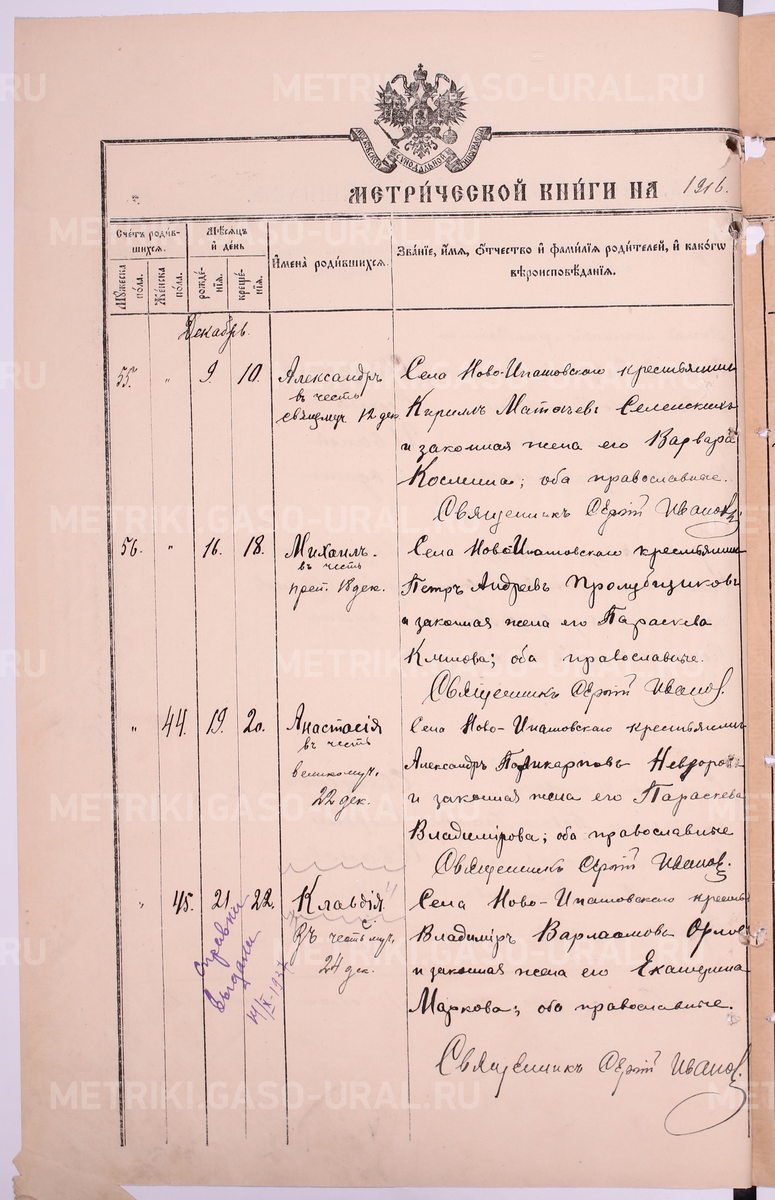 METRIKI.GASO-URAL.RU
МЕТРИ́ЧЕСКОЙ КНИ́ГИ НА 1916.
Сче́тъ роди́в-
шихся.
Мѣ́сяцъ
и҆ де́нь
Мꙋ́жеска
по́ла.
Же́нска
по́ла.
рожде́-
нїѧ.
креще́-
нїѧ.
И҆мена̀ роди́вшихсѧ.
Зва́нїе, и҆́мѧ, ѻ҆́тчество и҆ фами́лїѧ роди́телей, и҆ како́гѡ
вѣроисповѣ́данїѧ.
Декабрь.
55. " 9. 10. Александръ
въ честь
свящмуч 12 дек.
Села Ново-Ипатовскаго крестьянинъ
Кирилъ Матѳѣевъ Селенскихъ
и законная жена его Варвара
Космина; оба православные.
Священникъ Сергій Ивановъ.
56. " 16. 18. Михаилъ.
въ честь
преп. 18 дек.
Села Ново-Ипатовскаго крестьянинъ
Петръ Андреевъ Пролубщиковъ
и законная жена его Параскева
Климова; оба православные.
Священникъ Сергій Иванов.
" 44. 19. 20. Анастасія
въ честь
великомуч.
22 дек.
Села Ново-Ипатовскаго крестьянинъ
Александръ Поликарповъ
и законная жена его Параскева
Владимірова; оба православные
Священникъ Сергій Иванов.
" 45. 21. 22. Клавдія
Въ честь муч.
24 дек.
Села Ново-Ипатовскаго крестьян
Владиміръ Варлаамовъ Орлов
и законная жена его Екатерина
Маркова; оба православные.
Священникъ Сергій Иванов.
Справки
выданы